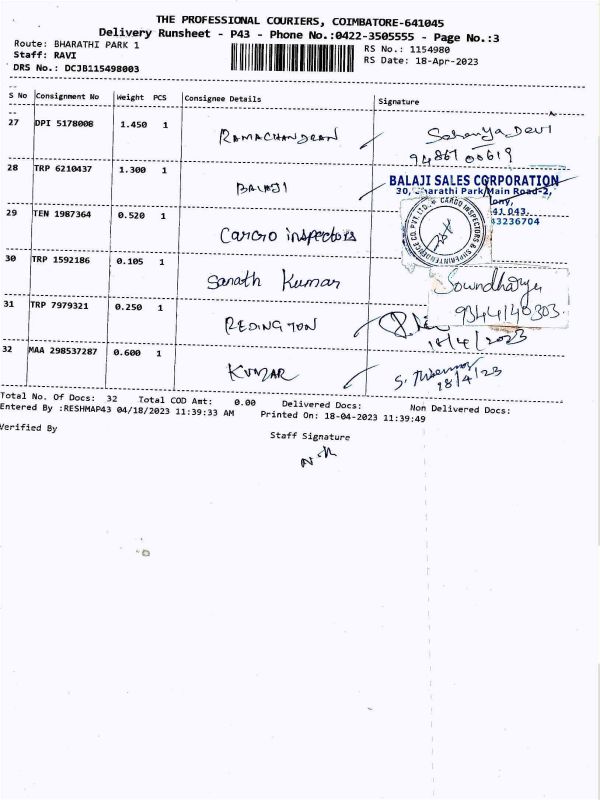 THE PROFESSIONAL COURIERS, COIMBATORE-641045
Delivery Runsheet - P43 - Phone No.:0422-3505555 - Page No.:3
Route: BHARATHI PARK 1
RS No.: 1154980
Staff: RAVI
RS Date: 18-Apr-2023
DRS No.: DCJB115498003
S No Consignment No Weight PCS Consignee Details Signature
27 DPI 5178008 1.450 1 RAMACHANDRAN
9486700619
28 TRP 6210437 1.300 1 BALAJI
BALAJI SALES CORPORATION
30, Bharathi Park Main Road-2,
lony,
41 043.
43236704
29 TEN 1987364 0.520 1 Cargo inspectors
CARGO INSPECTORS & SUPERINTENDENCE CO. PVT. LTD.
30 TRP 1592186 0.105 1 Sanath Kumar
Soundharya
9344140303.
31 TRP 7979321 0.250 1 REDINGTON
18/4/2023
32 MAA 298537287 0.600 1 KUMAR
18/4/23
Total No. Of Docs: 32 Total COD Amt: 0.00 Delivered Docs: Non Delivered Docs:
Entered By :RESHMAP43 04/18/2023 11:39:33 AM Printed On: 18-04-2023 11:39:49
Verified By
Staff Signature